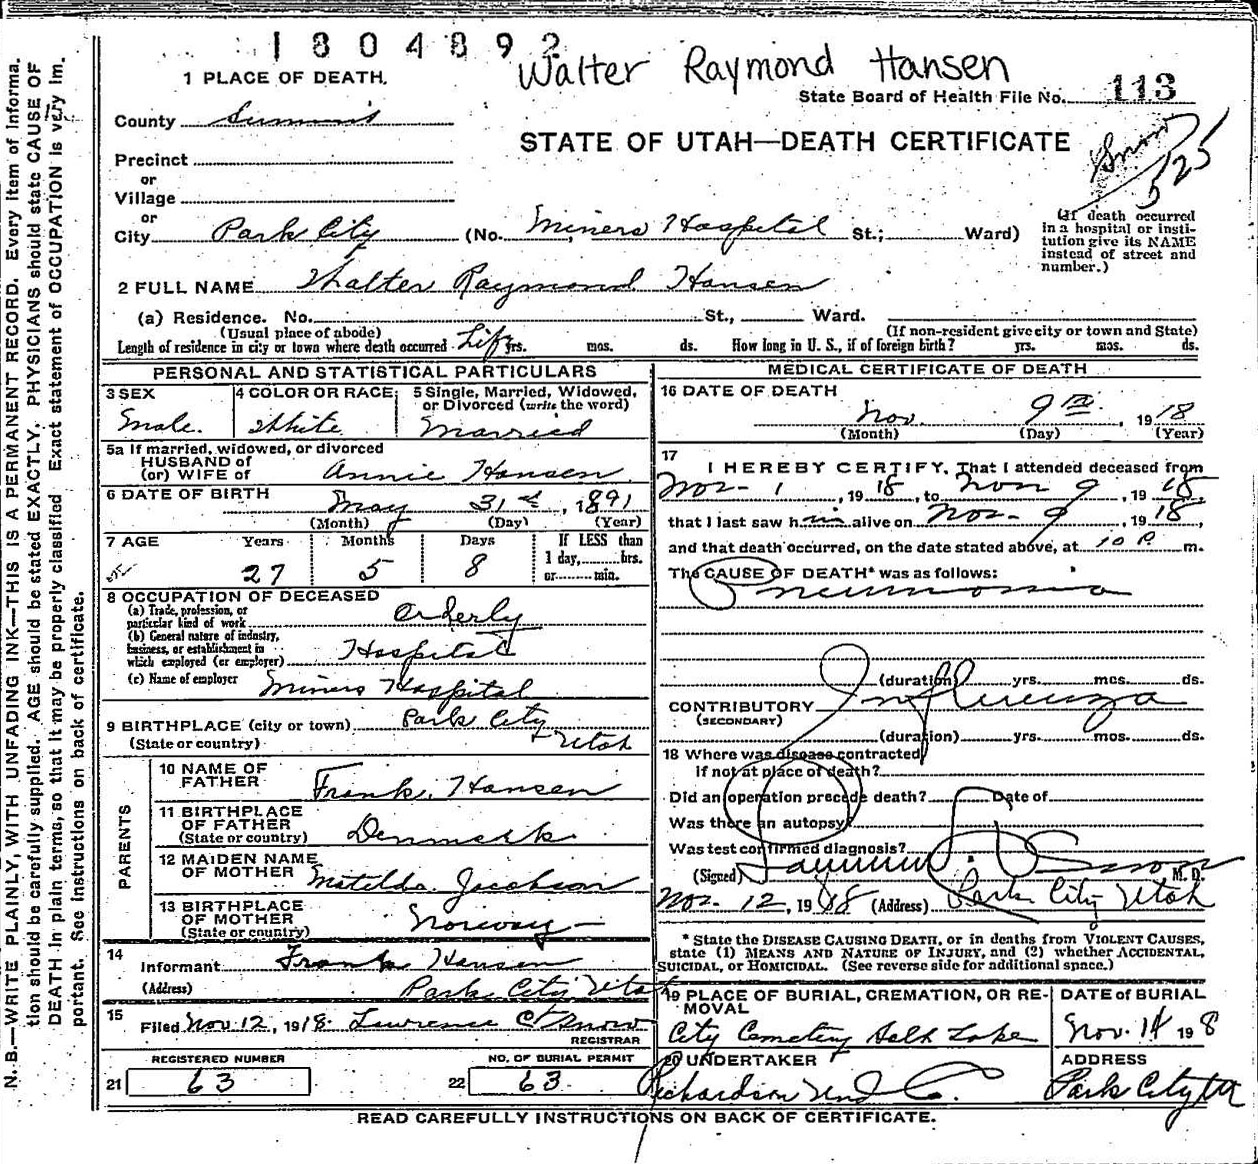 1804892
Walter Raymond Hansen
1 PLACE OF DEATH.
State Board of Health File No. 113
County Summit
STATE OF UTAH—DEATH CERTIFICATE
Snow
525
Precinct
or
Village
or
City Park City (No. Miners Hospital St.; Ward)
(If death occurred in a hospital or insti-
tution give its NAME
instead of street and
number.)
2 FULL NAME Walter Raymond Hansen
(a) Residence. No. St., Ward.
(Usual place of abode) (If non-resident give city or town and State)
Length of residence in city or town where death occurred Life yrs. mos. ds. How long in U. S., if of foreign birth? yrs. mos. ds.
PERSONAL AND STATISTICAL PARTICULARS
3 SEX
Male.
4 COLOR OR RACE
White
5 Single, Married, Widowed,
or Divorced (write the word)
Married
5a If married, widowed, or divorced
HUSBAND of
(or) WIFE of Annie Hansen
6 DATE OF BIRTH
May 31st, 1891
(Month) (Day) (Year)
7 AGE Years Months Days If LESS than
1 day, hrs.
or min.
27 5 8
8 OCCUPATION OF DECEASED
(a) Trade, profession, or
particular kind of work Orderly
(b) General nature of industry,
business, or establishment in
which employed (or employer) Hospital
(c) Name of employer Miners Hospital
9 BIRTHPLACE (city or town) Park City
(State or country) Utah
PARENTS
10 NAME OF
FATHER Frank Hansen
11 BIRTHPLACE
OF FATHER
(State or country) Denmark
12 MAIDEN NAME
OF MOTHER Matilda Jacobson
13 BIRTHPLACE
OF MOTHER
(State or country) Norway
14
Informant Frank Hansen
(Address) Park City Utah
15
Filed Nov. 12, 1918. Lawrence C. Snow
REGISTRAR
REGISTERED NUMBER
21 63
NO. OF BURIAL PERMIT
22 63
MEDICAL CERTIFICATE OF DEATH
16 DATE OF DEATH
Nov. 9th. 1918
(Month) (Day) (Year)
17
I HEREBY CERTIFY, That I attended deceased from
Nov - 1, 1918, to Nov 9, 1918,
that I last saw him alive on Nov - 9, 1918,
and that death occurred, on the date stated above, at 10 P. m.
The CAUSE OF DEATH* was as follows:
Pneumonia
(duration) yrs. mos. ds.
CONTRIBUTORY Influenza
(SECONDARY)
(duration) yrs. mos. ds.
18 Where was disease contracted
if not at place of death?
Did an operation precede death? Date of
Was there an autopsy?
Was test confirmed diagnosis?
(Signed) Snow M. D.
Nov. 12, 19 (Address) Park City Utah
* State the DISEASE CAUSING DEATH, or in deaths from VIOLENT CAUSES,
state (1) MEANS AND NATURE OF INJURY, and (2) whether ACCIDENTAL,
SUICIDAL, or HOMICIDAL. (See reverse side for additional space.)
19 PLACE OF BURIAL, CREMATION, OR RE-
MOVAL
City Cemetery Salt Lake
DATE OF BURIAL
Nov. 14 198
20 UNDERTAKER
Richardson Und Co.
ADDRESS
Park City
READ CAREFULLY INSTRUCTIONS ON BACK OF CERTIFICATE.
N. B.—WRITE PLAINLY, WITH UNFADING INK—THIS IS A PERMANENT RECORD. Every item of informa-
tion should be carefully supplied. AGE should be stated EXACTLY. PHYSICIANS should state CAUSE OF
DEATH in plain terms, so that it may be properly classified. Exact statement of OCCUPATION is very im-
portant. See instructions on back of certificate.